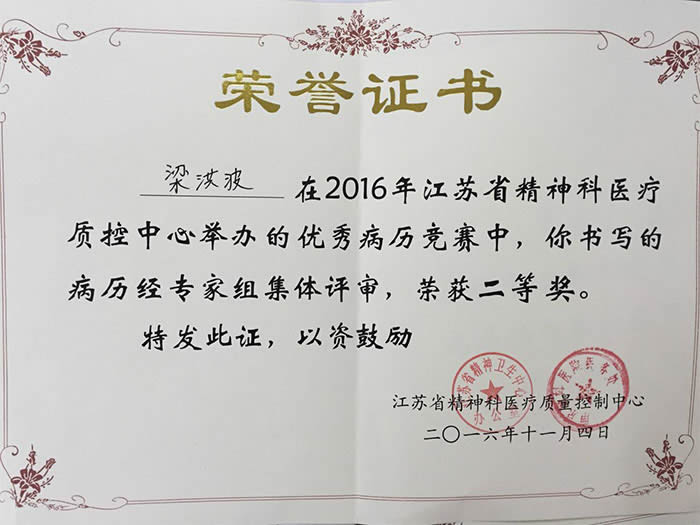 荣誉证书
梁洪波 在2016年江苏省精神科医疗
质控中心举办的优秀病历竞赛中，你书写的
病历经专家组集体评审，荣获二等奖。
特发此证，以资鼓励
江苏省精神卫生中心
办公室
江苏省精神科医疗质量控制中心
二〇一六年十一月四日